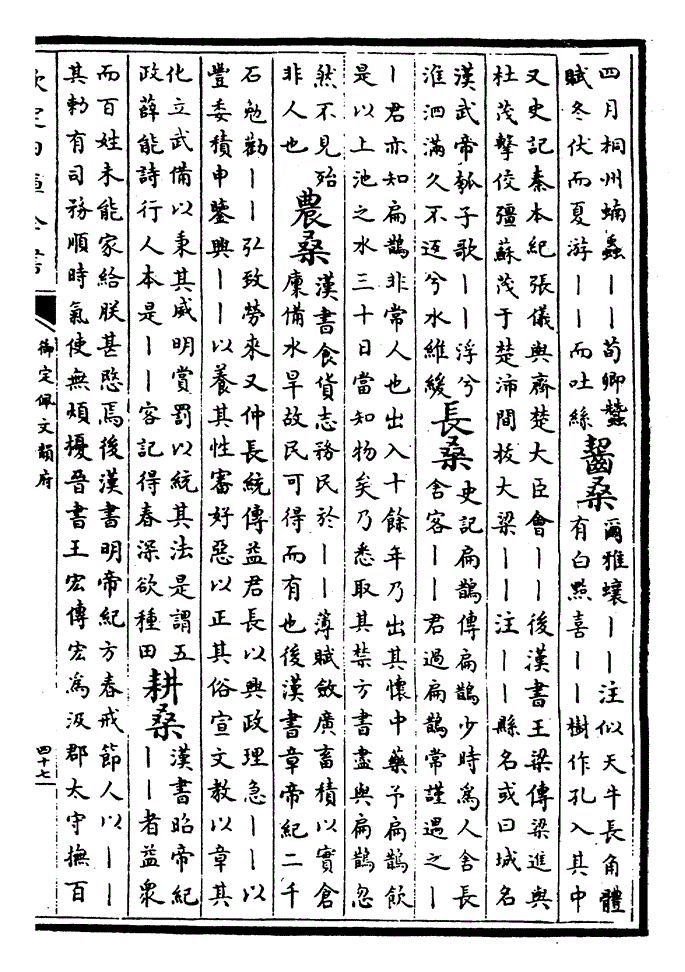 四月桐州蝻蠡丨丨荀卿蠶
賦冬伏而夏游丨丨而吐絲
齧桑
爾雅蠰丨丨注似天牛長角體
有白㸃喜丨丨樹作孔入其中
又史記秦本紀張儀與齊楚大臣會丨丨後漢書王梁傳梁進與
杜茂擊佼彊蘇茂于楚沛間拔大梁丨丨注丨丨縣名或曰城名
漢武帝瓠子歌丨丨浮兮
淮泗滿久不返兮水維緩
長桑
史記扁鵲傳扁鵲少時爲人舍長
舍客丨丨君過扁鵲常謹遇之丨
丨君亦知扁鵲非常人也出入十餘年乃出其懷中藥予扁鵲飲
是以上池之水三十日當知物矣乃悉取其禁方書盡與扁鵲忽
然不見殆
非人也
農桑
漢書食貨志務民於丨丨薄賦斂廣畜積以實倉
廩備水旱故民可得而有也後漢書章帝紀二千
石勉勸丨丨弘致勞來又仲長統傳益君長以興政理急丨丨以
豐委積申鑒興丨丨以養其性審好惡以正其俗宣文教以章其
化立武備以秉其威明賞罰以統其法是謂五
政薛能詩行人本是丨丨客記得春深欲種田
耕桑
漢書昭帝紀
丨丨者益衆
而百姓未能家給朕甚愍焉後漢書明帝紀方春戒節人以丨丨
其勑有司務順時氣使無煩擾晉書王宏傳宏爲汲郡太守撫百
欽定四庫全書
御定佩文韻府
四十七